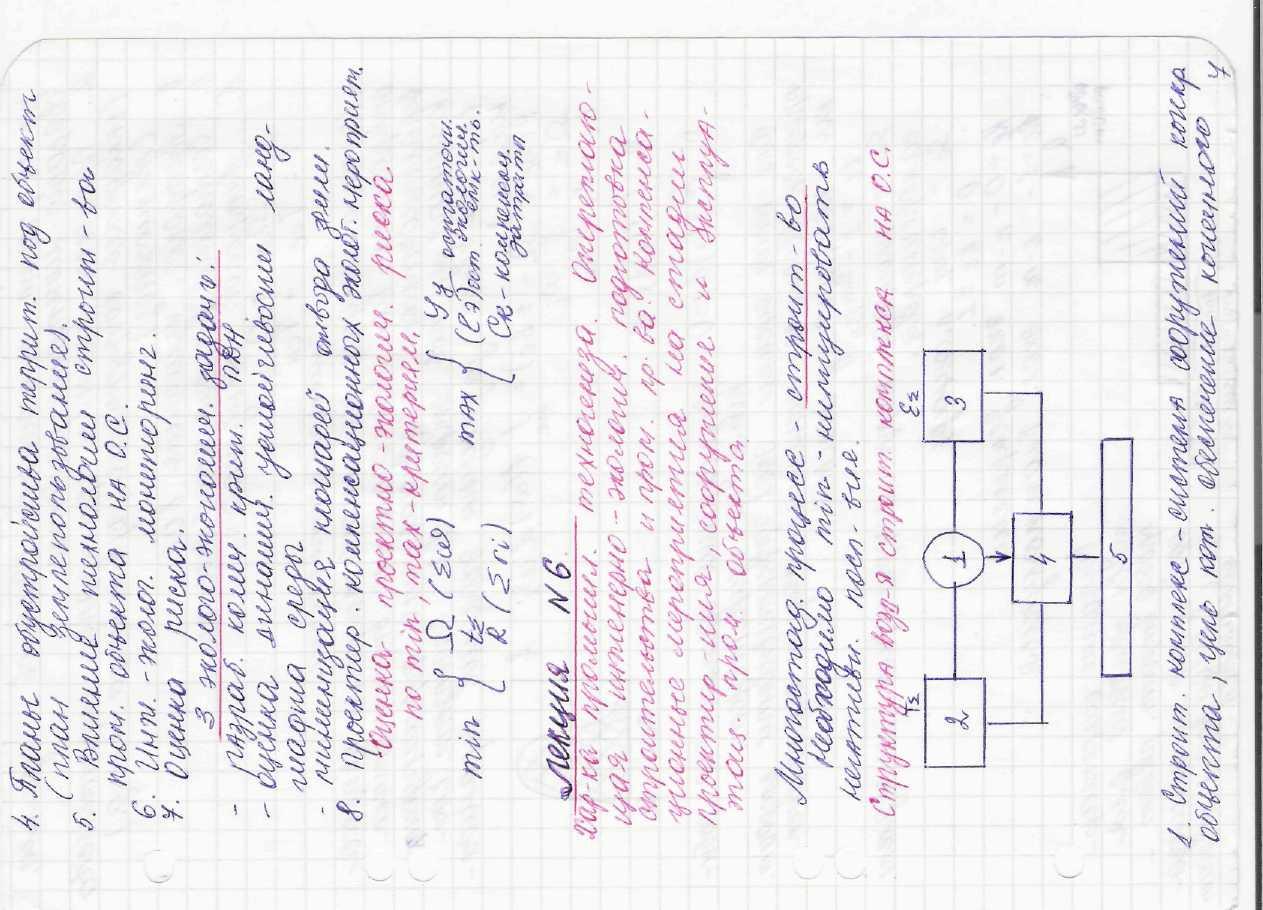 4. Планы обустройства террит. под объект
(план землепользование).
5. Влияние технологии строит-ва
пром. объекта на О.С.
6. Инж.-экол. мониторинг.
7. Оценка риска.
3 эколого-эконом. задачи:
- разраб. комп. крит. ПДН
- оценка динамич. устойчивости ланд-
шафта среды
- минимизация площадей отвода земли.
8. Проектир. компенсационных эколог. мероприят.
Оценка проектно-экологич. риска
по min, max-критериям.
min { Ω/tz (Σω)
R (Σri)
max { Уу остаточн.
(Сэ)ост. экологич. емк-ть.
Ск - компенсац. затраты
Лекция №6
Хар-ка промышл. техногенеза. Опережаю-
щая инженерно-эколог. подготовка
строительства и пром. пр-ва. Компенса-
ционные мероприятия на стадии
проектир-ния, сооружение и эксплуа-
тац. пром. объекта.
Многостад. процесс - строит-во
Необходимо min-нимизировать
негативн. посл-вие.
Структура возд-я строит. комплекса на О.С.
Tz
Ez
2
1
3
4
5
1. Строит. комплекс - система сооружений конкр
объекта, цель кот. обеспечение конечного